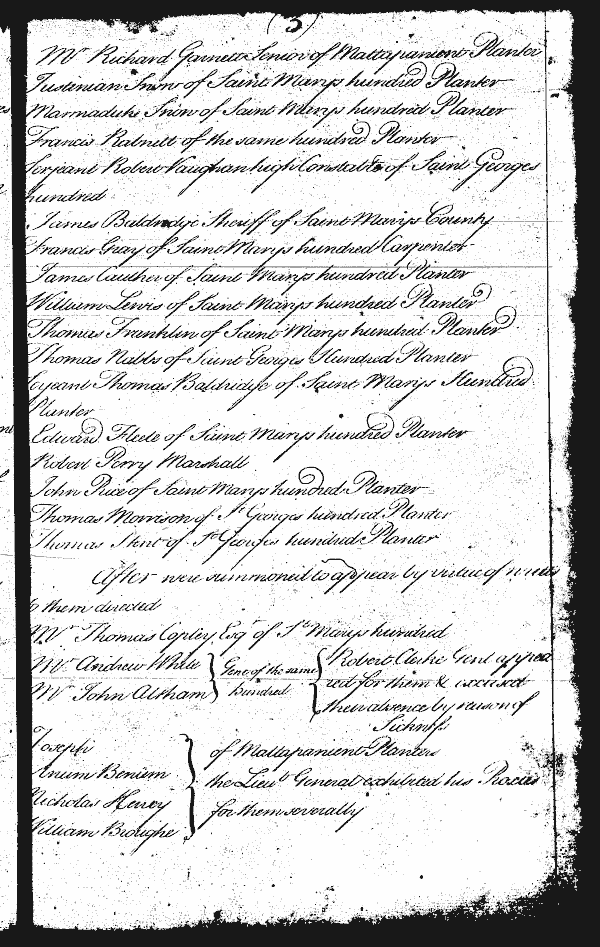 (3)
Mr Richard Garnett Senior of Mattapanient Planter
Justinian Snow of Saint Marys hundred Planter
Marmaduke Snow of Saint Marys hundred Planter
Francis Rabnett of the same hundred Planter
Serjeant Robert Vaughan high Constable of Saint Georges
hundred
James Baldridge Sheriff of Saint Marys County
Francis Gray of Saint Marys hundred Carpenter
James Cauther of Saint Marys hundred Planter
William Lewis of Saint Marys hundred Planter
Thomas Franklin of Saint Marys hundred Planter
Thomas Nabbs of Saint Georges Hundred Planter
Serjeant Thomas Baldridge of Saint Marys Hundred
Planter
Edward Fleete of Saint Marys hundred Planter
Robert Perry Marshall
John Rice of Saint Marys hundred Planter
Thomas Morrison of St Georges hundred Planter
Thomas Stent of St Georges hundred Planter
After were summoned to appear by virtue of writts
to them directed
Mr Thomas Copley Esqr of St Marys hundred
Mr Andrew White
Mr John Altham
Gene of the same
hundred
Robert Clerke Gent appea
red for them & excused
their absence by reason of
Sickness
Joseph
Anum Beniem
Nicholas Hervey
William Broughe
of Mattapanient Planters
the Lieut General exhibited his Proxies
for them severally